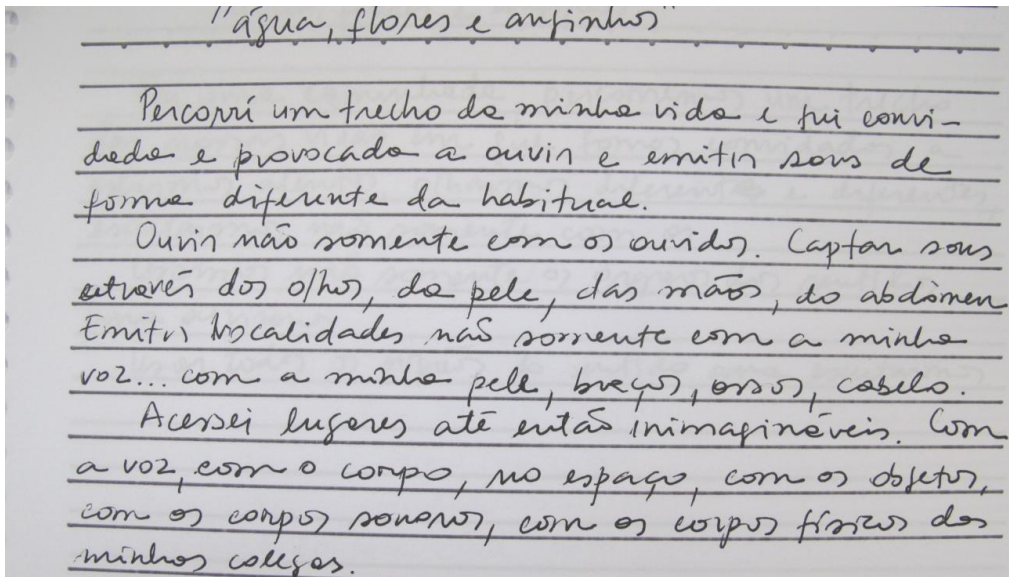 "água, flores e anjinhos"
Percorri um trecho da minha vida e fui convi-
dada e provocada a ouvir e emitir sons de
forma diferente da habitual.
Ouvir não somente com os ouvidos. Captar sons
através dos olhos, da pele, das mãos, do abdômen
Emitir vocalidades não somente com a minha
voz... com a minha pele, braços, ossos, cabelo.
Acessei lugares até então inimagináveis. Com
a voz, com o corpo, no espaço, com os objetos,
com os corpos sonoros, com os corpos físicos dos
minhos colegas.